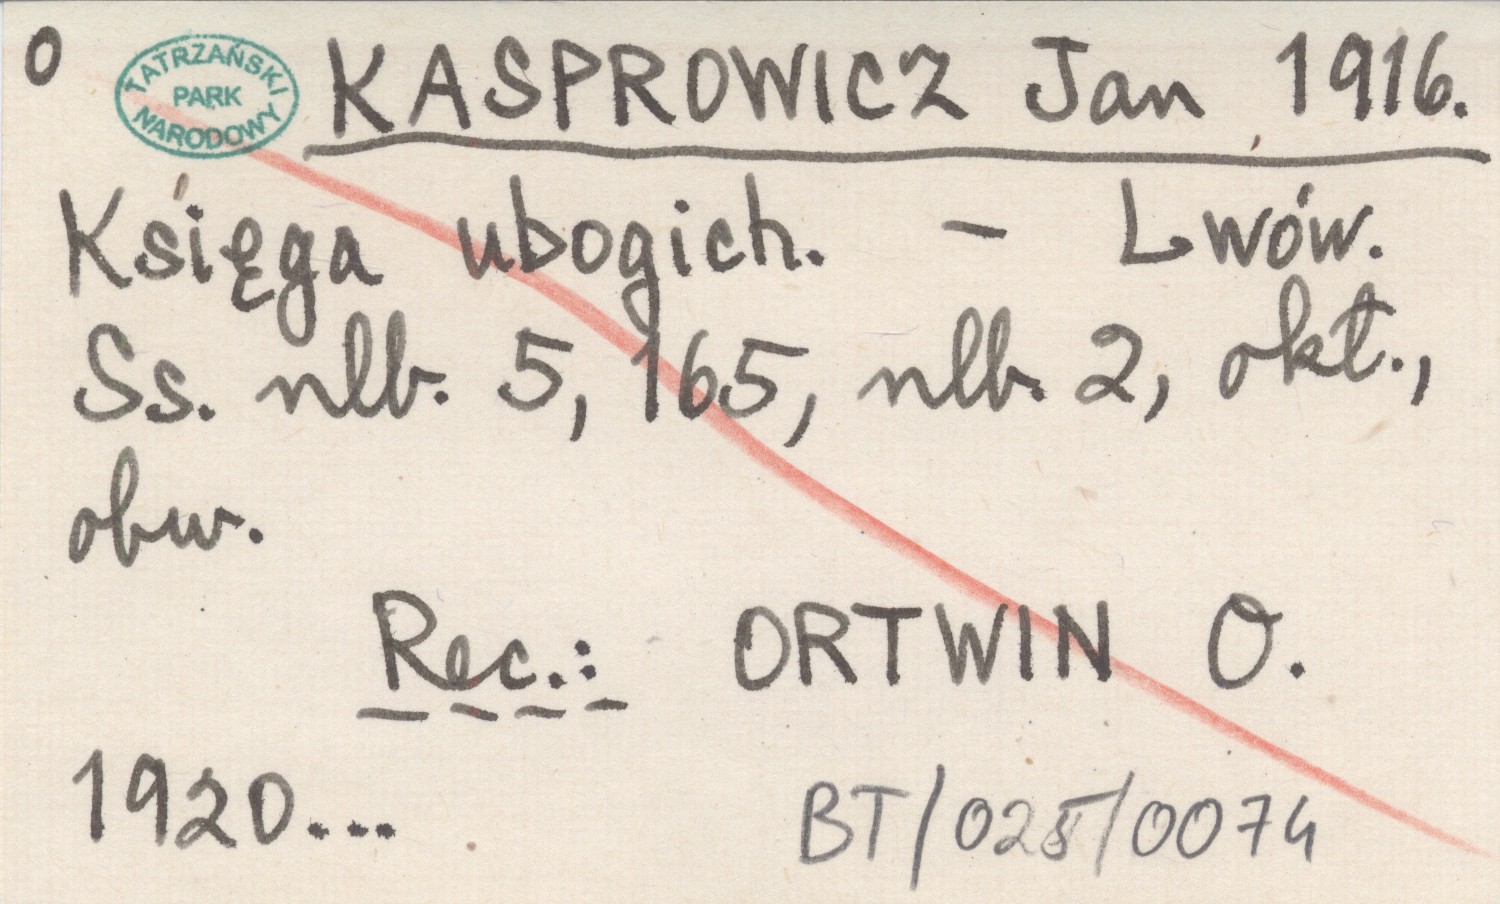 0
TATRZAŃSKI
PARK
NARODOWY
KASPROWICZ Jan 1916.
Księga ubogich. – Lwów.
Ss. nlb. 5, 165, nlb. 2, okł.,
obw.
Rec.: ORTWIN O.
1920...
BT/025/0074